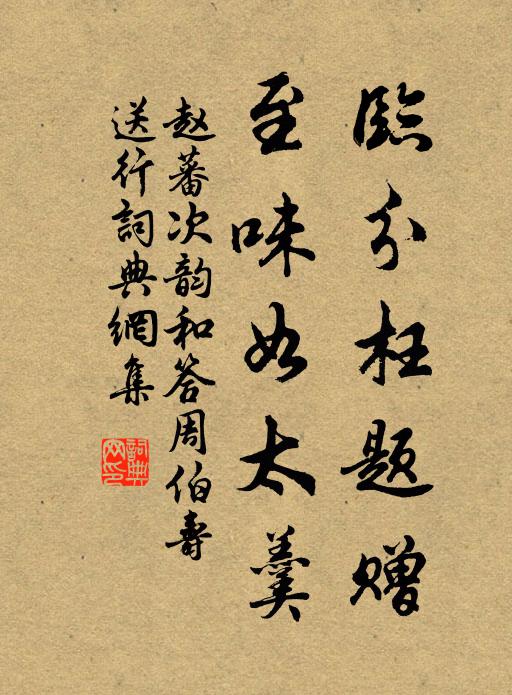 臨分枉题赠
至味如太羹
赵蕃次韵和答周伯壽
送行詞典網集
詞典
网印